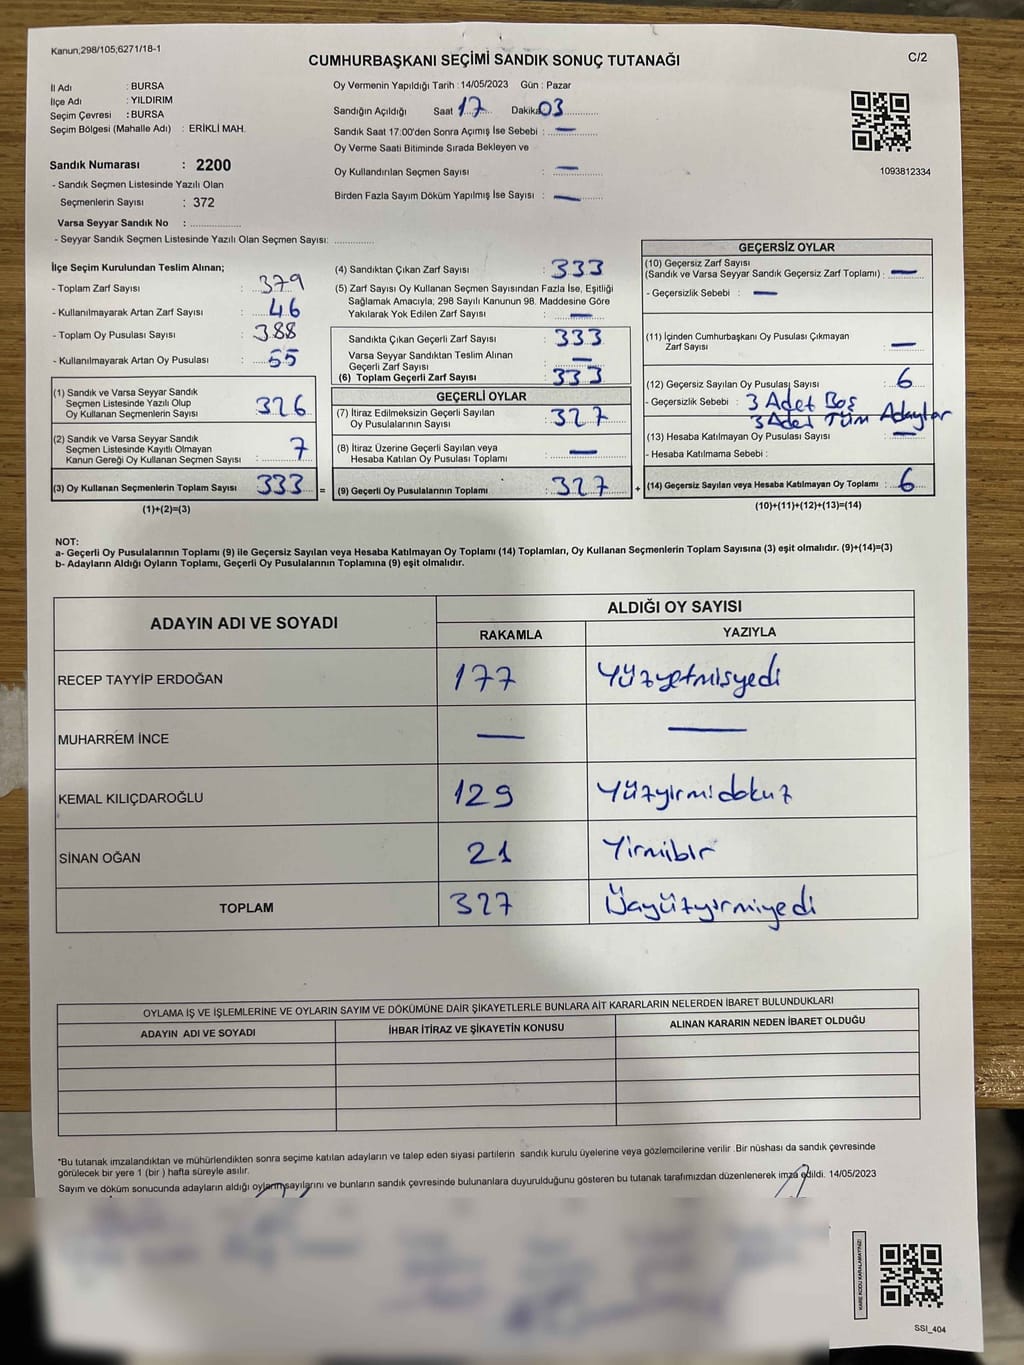 Kanun;298/105;6271/18-1
CUMHURBAŞKANI SEÇİMİ SANDIK SONUÇ TUTANAĞI
C/2
İl Adı : BURSA
İlçe Adı : YILDIRIM
Seçim Çevresi : BURSA
Seçim Bölgesi (Mahalle Adı) : ERİKLİ MAH.
Sandık Numarası : 2200
- Sandık Seçmen Listesinde Yazılı Olan
Seçmenlerin Sayısı : 372
Varsa Seyyar Sandık No : ................
- Seyyar Sandık Seçmen Listesinde Yazılı Olan Seçmen Sayısı: ............
Oy Vermenin Yapıldığı Tarih : 14/05/2023 Gün : Pazar
Sandığın Açıldığı Saat 17 Dakika 03
Sandık Saat 17:00'den Sonra Açımış İse Sebebi : —
Oy Verme Saati Bitiminde Sırada Bekleyen ve
Oy Kullandırılan Seçmen Sayısı : —
Birden Fazla Sayım Döküm Yapılmış İse Sayısı : —
1093812334
İlçe Seçim Kurulundan Teslim Alınan;
- Toplam Zarf Sayısı : 379
- Kullanılmayarak Artan Zarf Sayısı : 46
- Toplam Oy Pusulası Sayısı : 388
- Kullanılmayarak Artan Oy Pusulası : 55
(1) Sandık ve Varsa Seyyar Sandık
Seçmen Listesinde Yazılı Olup
Oy Kullanan Seçmenlerin Sayısı : 326
(2) Sandık ve Varsa Seyyar Sandık
Seçmen Listesinde Kayıtlı Olmayan
Kanun Gereği Oy Kullanan Seçmen Sayısı : 7
(3) Oy Kullanan Seçmenlerin Toplam Sayısı : 333 =
(1)+(2)=(3)
(4) Sandıktan Çıkan Zarf Sayısı : 333
(5) Zarf Sayısı Oy Kullanan Seçmen Sayısından Fazla İse, Eşitliği
Sağlamak Amacıyla, 298 Sayılı Kanunun 98. Maddesine Göre
Yakılarak Yok Edilen Zarf Sayısı : —
Sandıkta Çıkan Geçerli Zarf Sayısı : 333
Varsa Seyyar Sandıktan Teslim Alınan
Geçerli Zarf Sayısı : —
(6) Toplam Geçerli Zarf Sayısı : 333
GEÇERLİ OYLAR
(7) İtiraz Edilmeksizin Geçerli Sayılan
Oy Pusulalarının Sayısı : 327
(8) İtiraz Üzerine Geçerli Sayılan veya
Hesaba Katılan Oy Pusulası Toplamı : —
(9) Geçerli Oy Pusulalarının Toplamı : 327 +
GEÇERSİZ OYLAR
(10) Geçersiz Zarf Sayısı
(Sandık ve Varsa Seyyar Sandık Geçersiz Zarf Toplamı) : —
- Geçersizlik Sebebi : —
(11) İçinden Cumhurbaşkanı Oy Pusulası Çıkmayan
Zarf Sayısı : —
(12) Geçersiz Sayılan Oy Pusulası Sayısı : 6
- Geçersizlik Sebebi : 3 Adet Boş
3 Adet Tüm Adaylar
(13) Hesaba Katılmayan Oy Pusulası Sayısı : —
- Hesaba Katılmama Sebebi :
(14) Geçersiz Sayılan veya Hesaba Katılmayan Oy Toplamı : 6
(10)+(11)+(12)+(13)=(14)
NOT:
a- Geçerli Oy Pusulalarının Toplamı (9) ile Geçersiz Sayılan veya Hesaba Katılmayan Oy Toplamı (14) Toplamları, Oy Kullanan Seçmenlerin Toplam Sayısına (3) eşit olmalıdır. (9)+(14)=(3)
b- Adayların Aldığı Oyların Toplamı, Geçerli Oy Pusulalarının Toplamına (9) eşit olmalıdır.
ADAYIN ADI VE SOYADI
ALDIĞI OY SAYISI
RAKAMLA YAZIYLA
RECEP TAYYİP ERDOĞAN 177 Yüzyetmişyedi
MUHARREM İNCE — —
KEMAL KILIÇDAROĞLU 129 Yüzyirmidokuz
SİNAN OĞAN 21 Yirmibir
TOPLAM 327 Üçyüzyirmiyedi
OYLAMA İŞ VE İŞLEMLERİNE VE OYLARIN SAYIM VE DÖKÜMÜNE DAİR ŞİKAYETLERLE BUNLARA AİT KARARLARIN NELERDEN İBARET BULUNDUKLARI
ADAYIN ADI VE SOYADI İHBAR İTİRAZ VE ŞİKAYETİN KONUSU ALINAN KARARIN NEDEN İBARET OLDUĞU
*Bu tutanak imzalandıktan ve mühürlendikten sonra seçime katılan adayların ve talep eden siyasi partilerin sandık kurulu üyelerine veya gözlemcilerine verilir .Bir nüshası da sandık çevresinde
görülecek bir yere 1 (bir ) hafta süreyle asılır.
Sayım ve döküm sonucunda adayların aldığı oyların sayılarını ve bunların sandık çevresinde bulunanlara duyurulduğunu gösteren bu tutanak tarafımızdan düzenlenerek imza edildi. 14/05/2023
KARE KODU KARALAMAYINIZ!
SSI_404